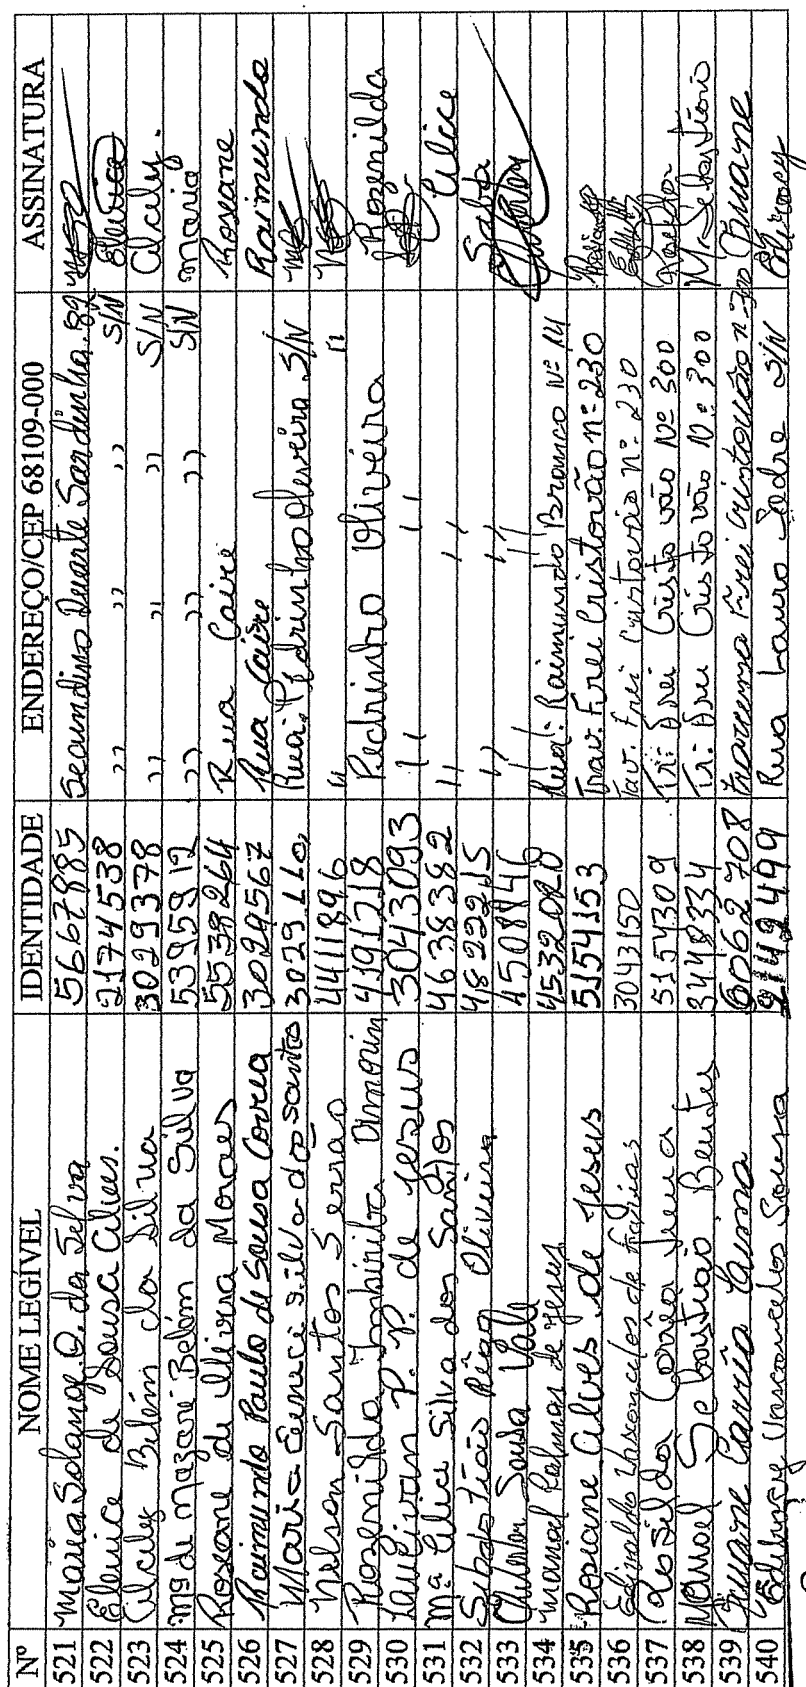 Nº NOME LEGÍVEL IDENTIDADE ENDEREÇO/CEP 68109-000 ASSINATURA
521 Maria Solange O. da Silva 5667885 Secundino Duarte Sardinha. 89
522 Elenice de Sousa Alves. 2174538 " " " S/N Elenice
523 Alciley Belém da Silva 3029378 " " " S/N Alciley.
524 Mª de Nazaré Belém da Silva 5395912 " " " S/N maria
525 Roseane de Oliveira Moraes 5538264 Rua Caire Roseane
526 Raimundo Paulo de Sousa Correa 3029567 Rua Caire Raimundo
527 Maria Eunice silva dos santos 3029110 Rua: Pedrinho Oliveira S/N
528 Nelson Santos Serrão 4411896 " "
529 Rozenilda Imbiriba Amorim 4191218 Pedrinho Oliveira Rozenilda
530 Laurivan P. P. de Jesus 3043093 " "
531 Mª Elice Silva dos Santos 4638382 " " Elice
532 Sebastião Rêgo Oliveira 4822215 " "
533 Sousa Vale 4508846 " "
534 Manoel Palmas de Jesus 4532020 Raimundo Branco Nº 14
535 Rosiane Alves de Jesus 5154153 Trav. Frei Cristovão nº 230
536 Edinaldo Vasconcelos de Farias 3043150 Trav. Frei Cristovão nº 230
537 Rosilda Corrêa 5154309 Tr: Frei Cristovão Nº 300
538 Manoel Sebastião Bentes 3448334 Tr: Frei Cristovão Nº 300 M. Sebastião
539 Corrêa Lima 6062708 Travessa Frei Cristovão n-300
540 Vasconcelos Sousa 2142499 Rua Lauro Sodre S/N